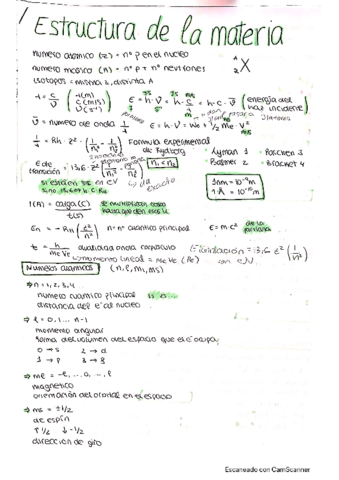 Estructura de la materia
numero atomico (z) = nº p en el nucleo
numero másico (A) = nº p + nº neutrones
isotopos = misma z, distinta A
A
Z X
E = h · ν = h · c/λ = h · c · ν̄ (energía del haz incidente)
ν̄ = numero de onda 1/λ
E = h · ν = We + 1/2 me v²
1/λ = Rh · z² · (1/n₁² - 1/n₂²) Formula experimental de Rydberg
E de transición = 13,6 · z² (1/n₁² - 1/n₂²) n₁ < n₂
Lyman 1 Paschen 3
Balmer 2 Bracket 4
1nm = 10⁻⁹m
1 Å = 10⁻¹⁰m
I(A) = carga(C) / t(s)
En = - Rh (z²/n²) n = nº cuantico principal
E = m c²
λ = h / me Ve dualidad onda corpusculo
momento lineal = me Ve
E ionización = 13,6 z² (1/n²) en eV
Numeros cuanticos (n, l, ml, ms)
⇒ n = 1, 2, 3, 4
numero cuantico principal
distancia e⁻ al nucleo
⇒ l = 0, 1 ... n-1
momento angular
forma del volumen del espacio que el e⁻ ocupa
0 → s 2 → d
1 → p 3 → f
⇒ ml = -l, ..., 0, ..., l
magnetico
orientación del orbital en el espacio
⇒ ms = ± 1/2
de espín
↑ 1/2 ↓ -1/2
direccion de giro
Escaneado con CamScanner